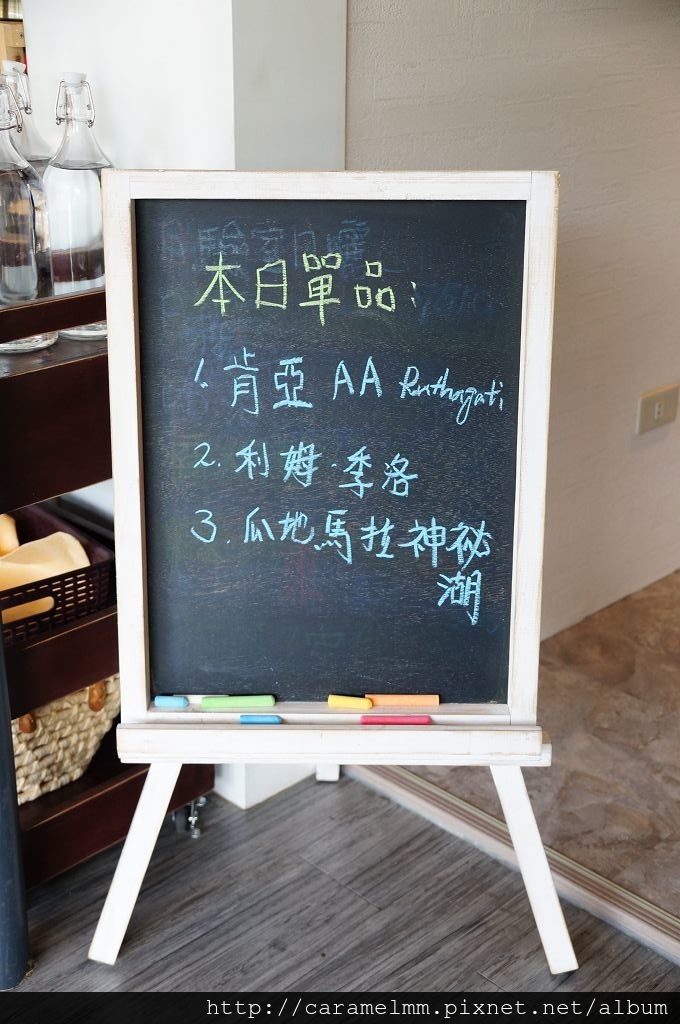 本日單品:
1. 肯亞 AA Ruthagati
2. 利姆·季洛
3. 瓜地馬拉神祕
湖
http://caramelmm.pixnet.net/album